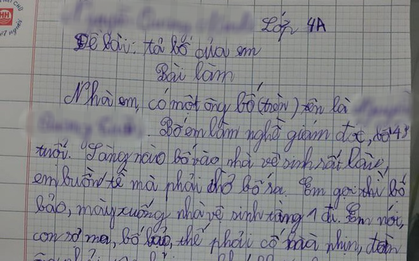 Lớp 4A
Đề bài: tả bố của em
Bài làm
Nhà em, có một ông bố (trên) tên là
Bố em làm nghề giám đốc, bố 43
tuổi. Sáng nào bố vào nhà vệ sinh rất lâu,
em buồn tè mà phải chờ bố ra. Em gọi thì bố
bảo, mày xuống nhà vệ sinh tầng 1 đi. Em nói,
con sợ ma, bố bảo, thế phải cố mà nhịn, đàn